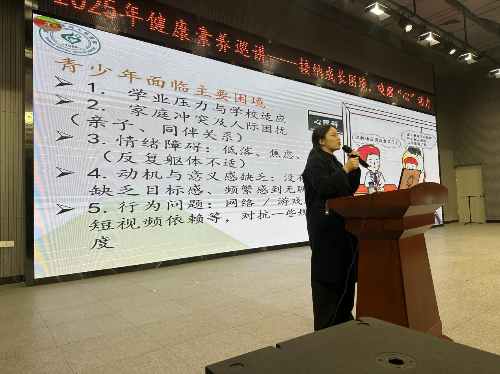 2025年健康素养巡讲——接纳成长困境，唤醒“心”动力
青少年面临主要困境
➢ 1. 学业压力与学校适应
➢ 2. 家庭冲突及人际困扰
（亲子、同伴关系）
➢ 3. 情绪障碍：低落、焦虑、
（反复躯体不适）
➢ 4. 动机与意义感缺乏：没有
缺乏目标感、频繁感到无聊
➢ 5. 行为问题：网络／游戏
短视频依赖等，对抗一些
度